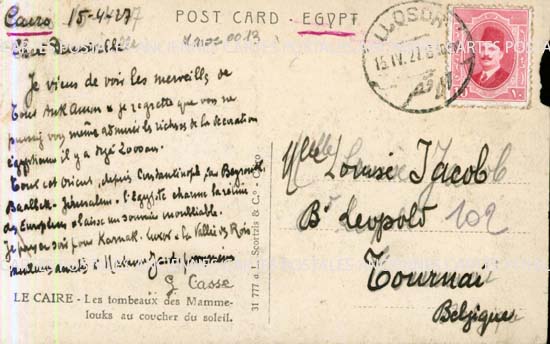 Cairo 15-4-27
POST CARD - EGYPT
Chère Demoiselle
LUXOR
15.IV.27
Je viens de voir les merveilles de
Tout Ank Amon & je regrette que vous ne
puissiez vous même admirer les richesses de la décoration
égyptienne il y a déjà 2000 ans.
Tout cet Orient, depuis Constantinople, par Beyrouth,
Baalbeck - Jérusalem & l'Egypte charme
des Européens & laisse un souvenir inoubliable.
Je pars ce soir pour Karnak. Luxor & la Vallée des Rois
G Casse
LE CAIRE - Les tombeaux des Mamme-
louks au coucher du soleil.
31 777 a L. Scortzis & Co. - Cairo
Mlle Louise Jacob
Bd Leopold 102
Tournai
Belgique